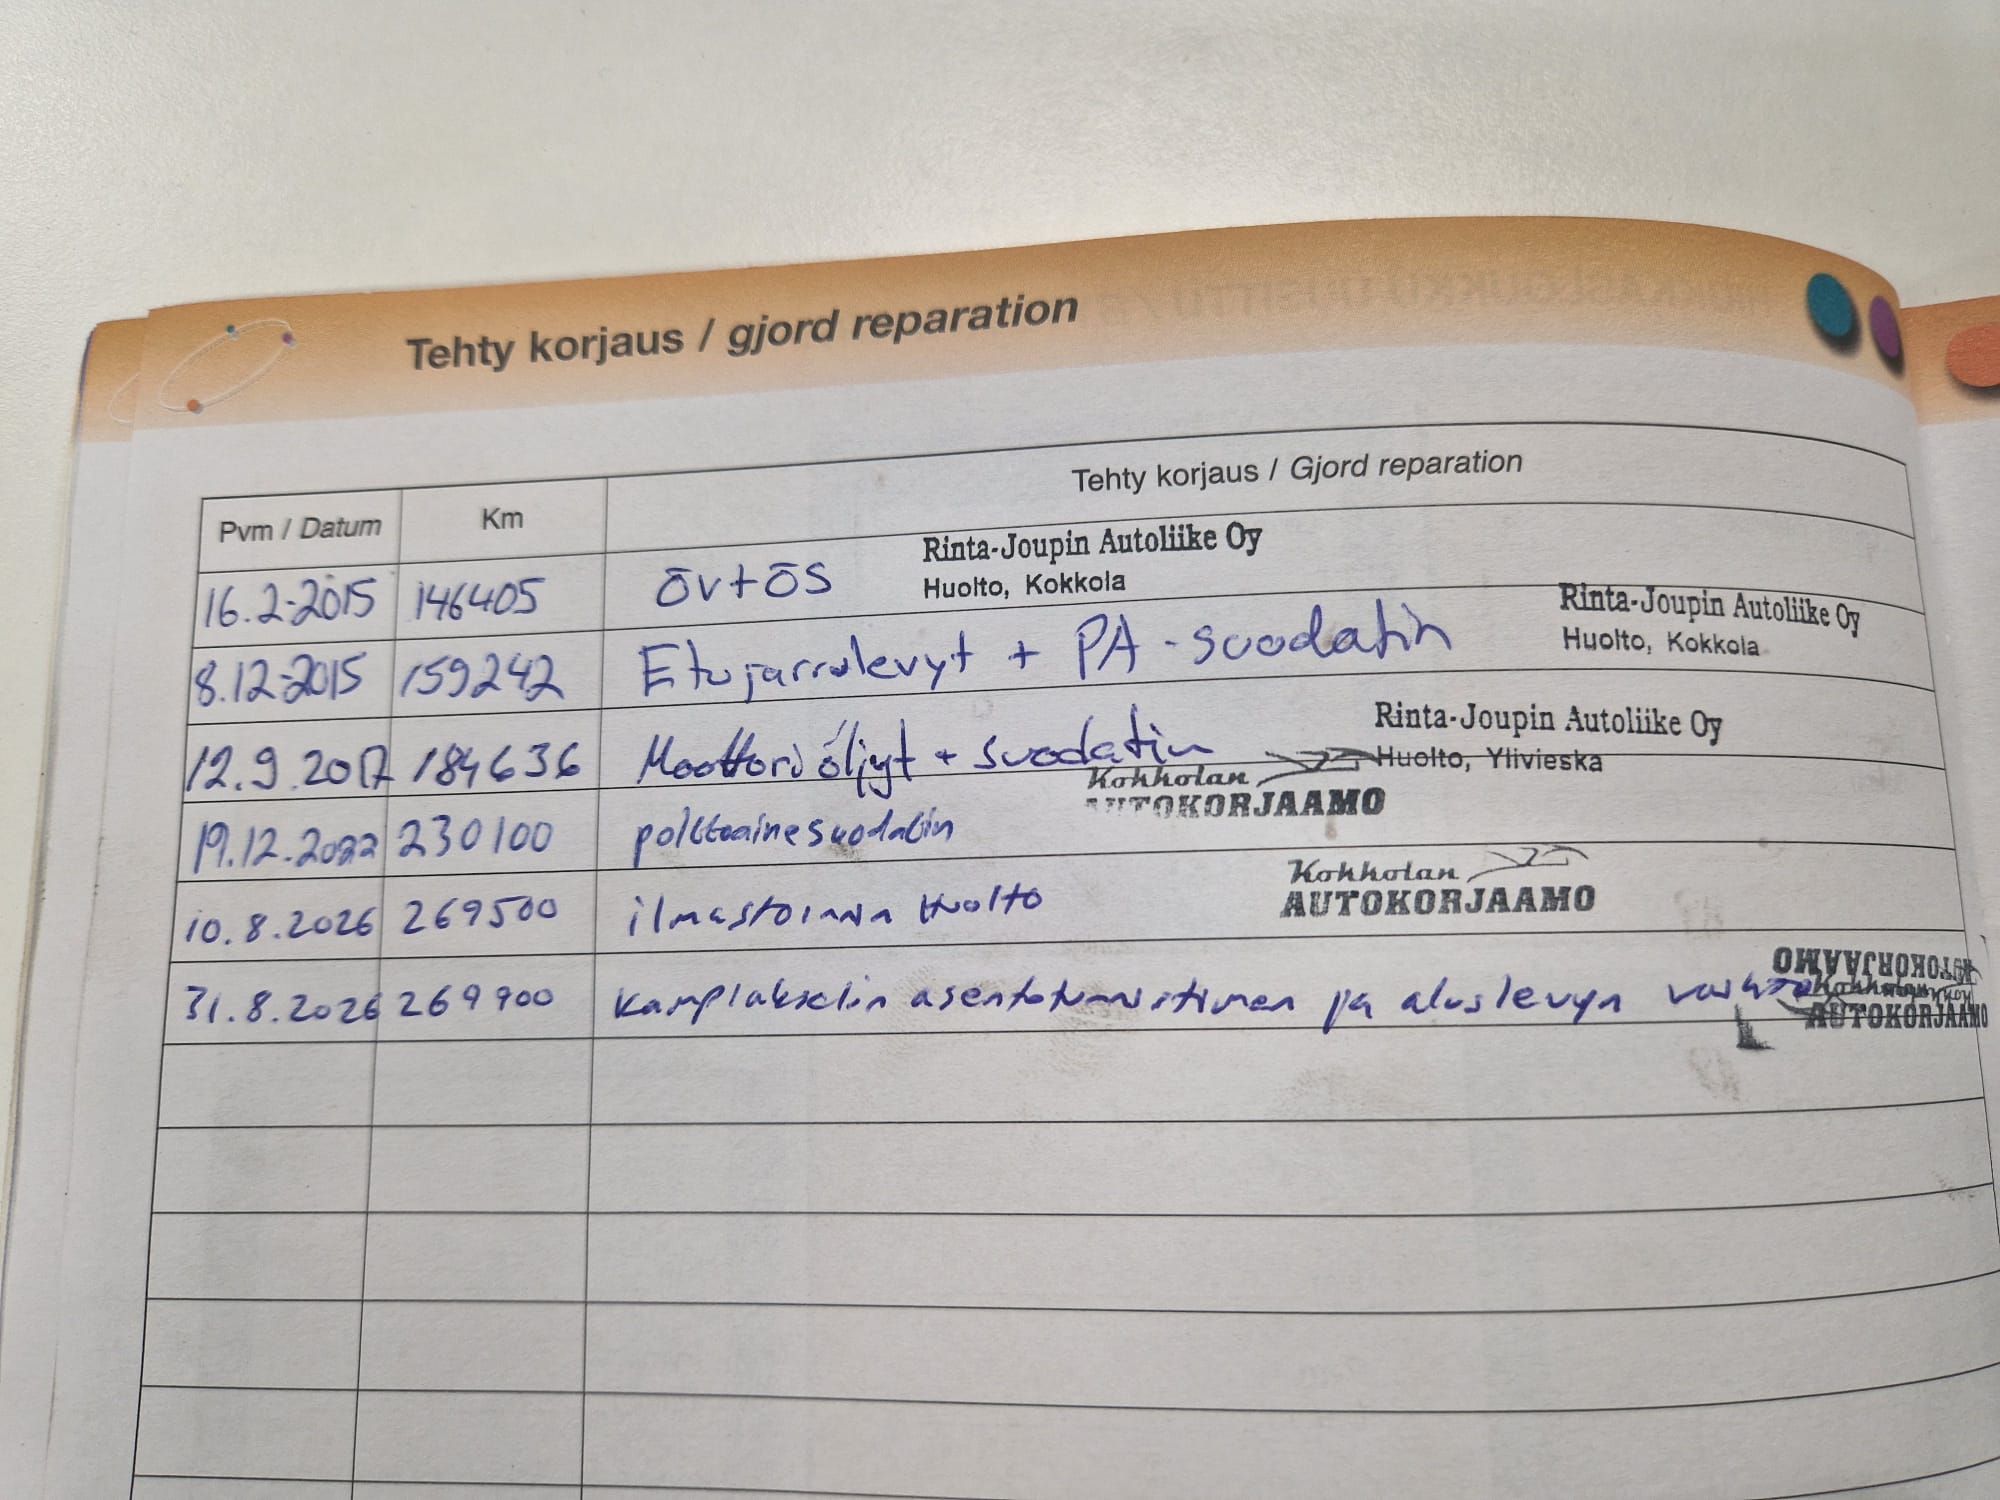 Tehty korjaus / gjord reparation
Pvm / Datum Km Tehty korjaus / Gjord reparation
16.2-2015 146405 ÖV+ÖS Rinta-Joupin Autoliike Oy
Huolto, Kokkola
8.12-2015 159242 Etujarrulevyt + PA-suodatin Rinta-Joupin Autoliike Oy
Huolto, Kokkola
12.9.2017 184636 Moottoriöljyt + suodatin Rinta-Joupin Autoliike Oy
Huolto, Ylivieska
Kokkolan
AUTOKORJAAMO
19.12.2022 230100 polttoainesuodatin
10.8.2026 269500 ilmastoinnin Huolto Kokkolan
AUTOKORJAAMO
31.8.2026 269900 Kampiakselin asentotunnistimen ja aluslevyn vaihto
AUTOKORJAAMO
Kokkolan
AUTOKORJAAMO